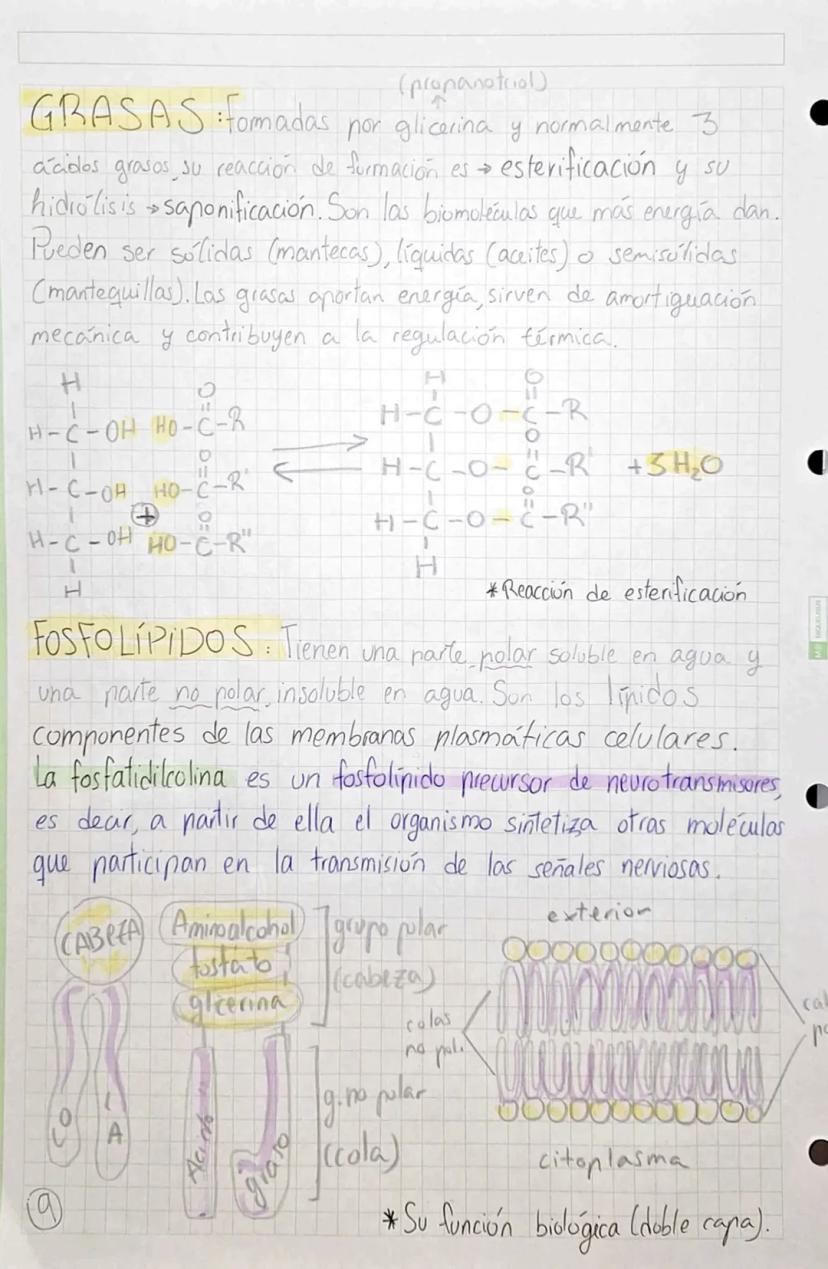 (propanotriol)
GRASAS: formadas por glicerina y normalmente 3
ácidos grasos, su reacción de formación es → esterificación y su
hidrólisis → saponificación. Son las biomoléculas que más energía dan.
Pueden ser sólidas (mantecas), líquidas (aceites) o semisólidas
(mantequillas). Las grasas aportan energía, sirven de amortiguación
mecánica y contribuyen a la regulación térmica.
H
O
H-C-OH HO-C-R
O
H-C-OH HO-C-R'
+
O
H-C-OH HO-C-R"
H
H
O
H-C-O-C-R
O
H-C-O-C-R' + 3H₂O
O
H-C-O-C-R"
H
*Reacción de esterificación
FOSFOLÍPIDOS: Tienen una parte polar soluble en agua y
una parte no polar, insoluble en agua. Son los lípidos
componentes de las membranas plasmáticas celulares.
La fosfatidilcolina es un fosfolípido precursor de neurotransmisores,
es decir, a partir de ella el organismo sintetiza otras moléculas
que participan en la transmisión de las señales nerviosas.
CABEZA
COLA
Aminoalcohol
fosfato
glicerina
grupo polar
(cabeza)
Ácido
graso
g. no polar
(cola)
exterior
colas
no pol.
citoplasma
*Su función biológica (doble capa).
9